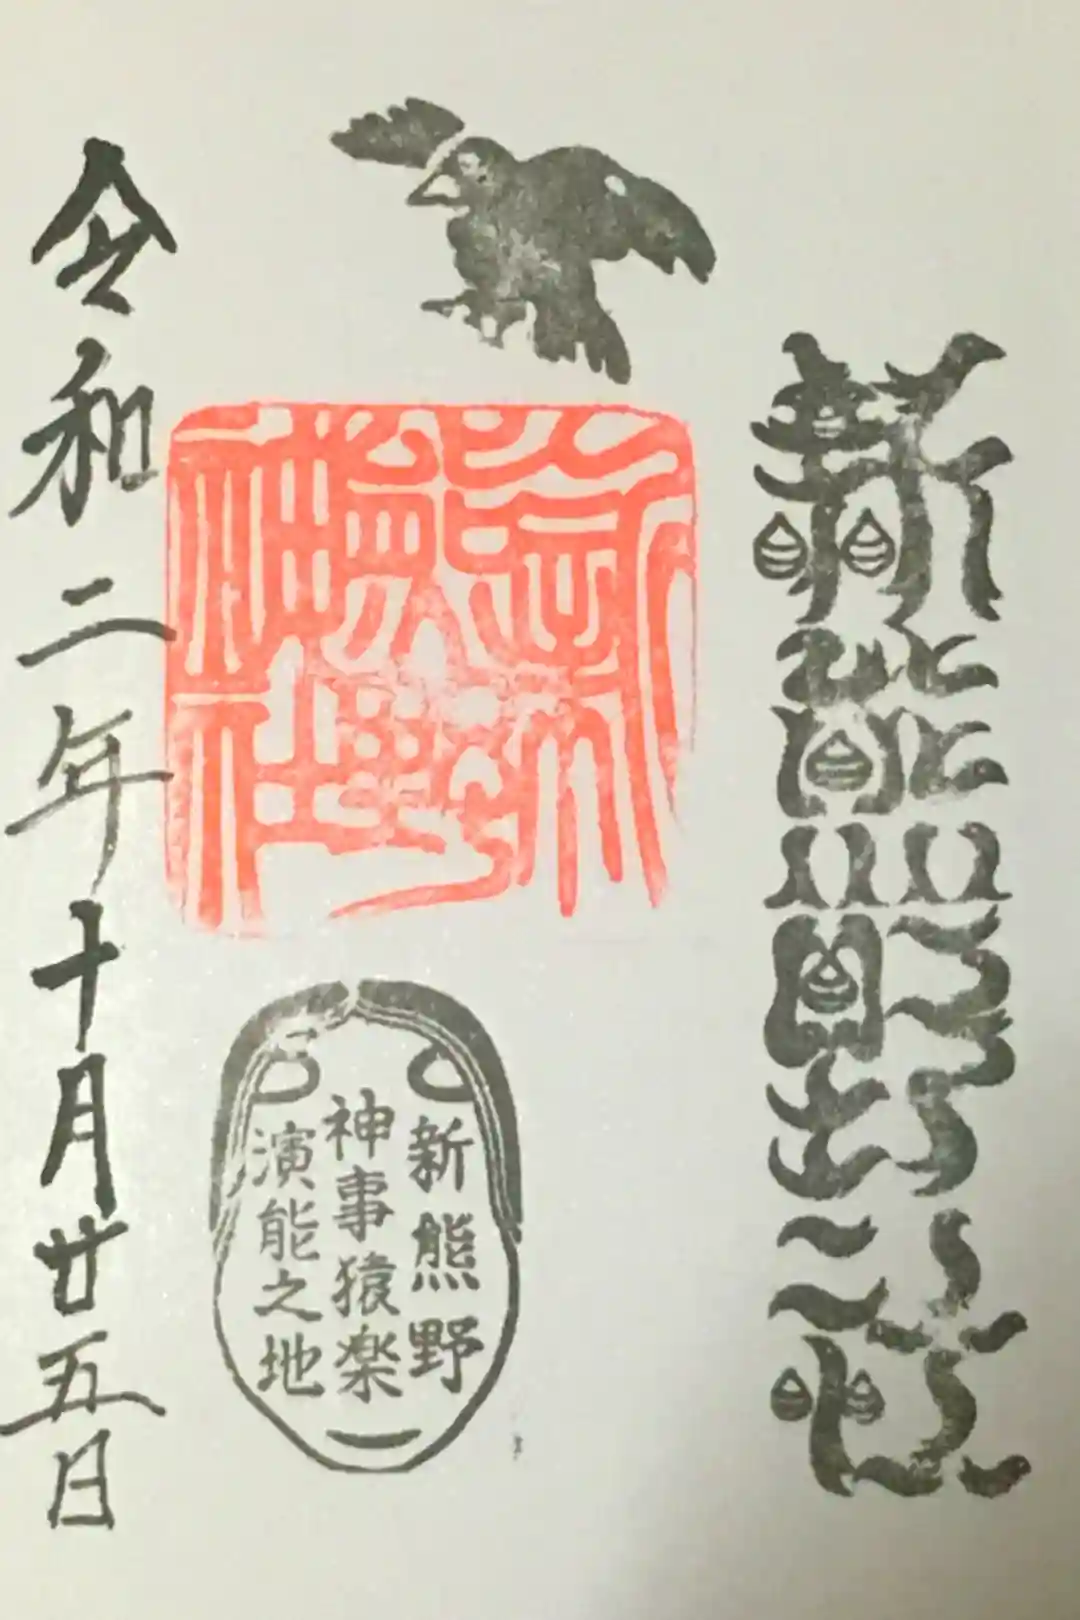 新熊野社
新熊野神社
新熊野
神事猿楽
演能之地
令和二年十月廿五日